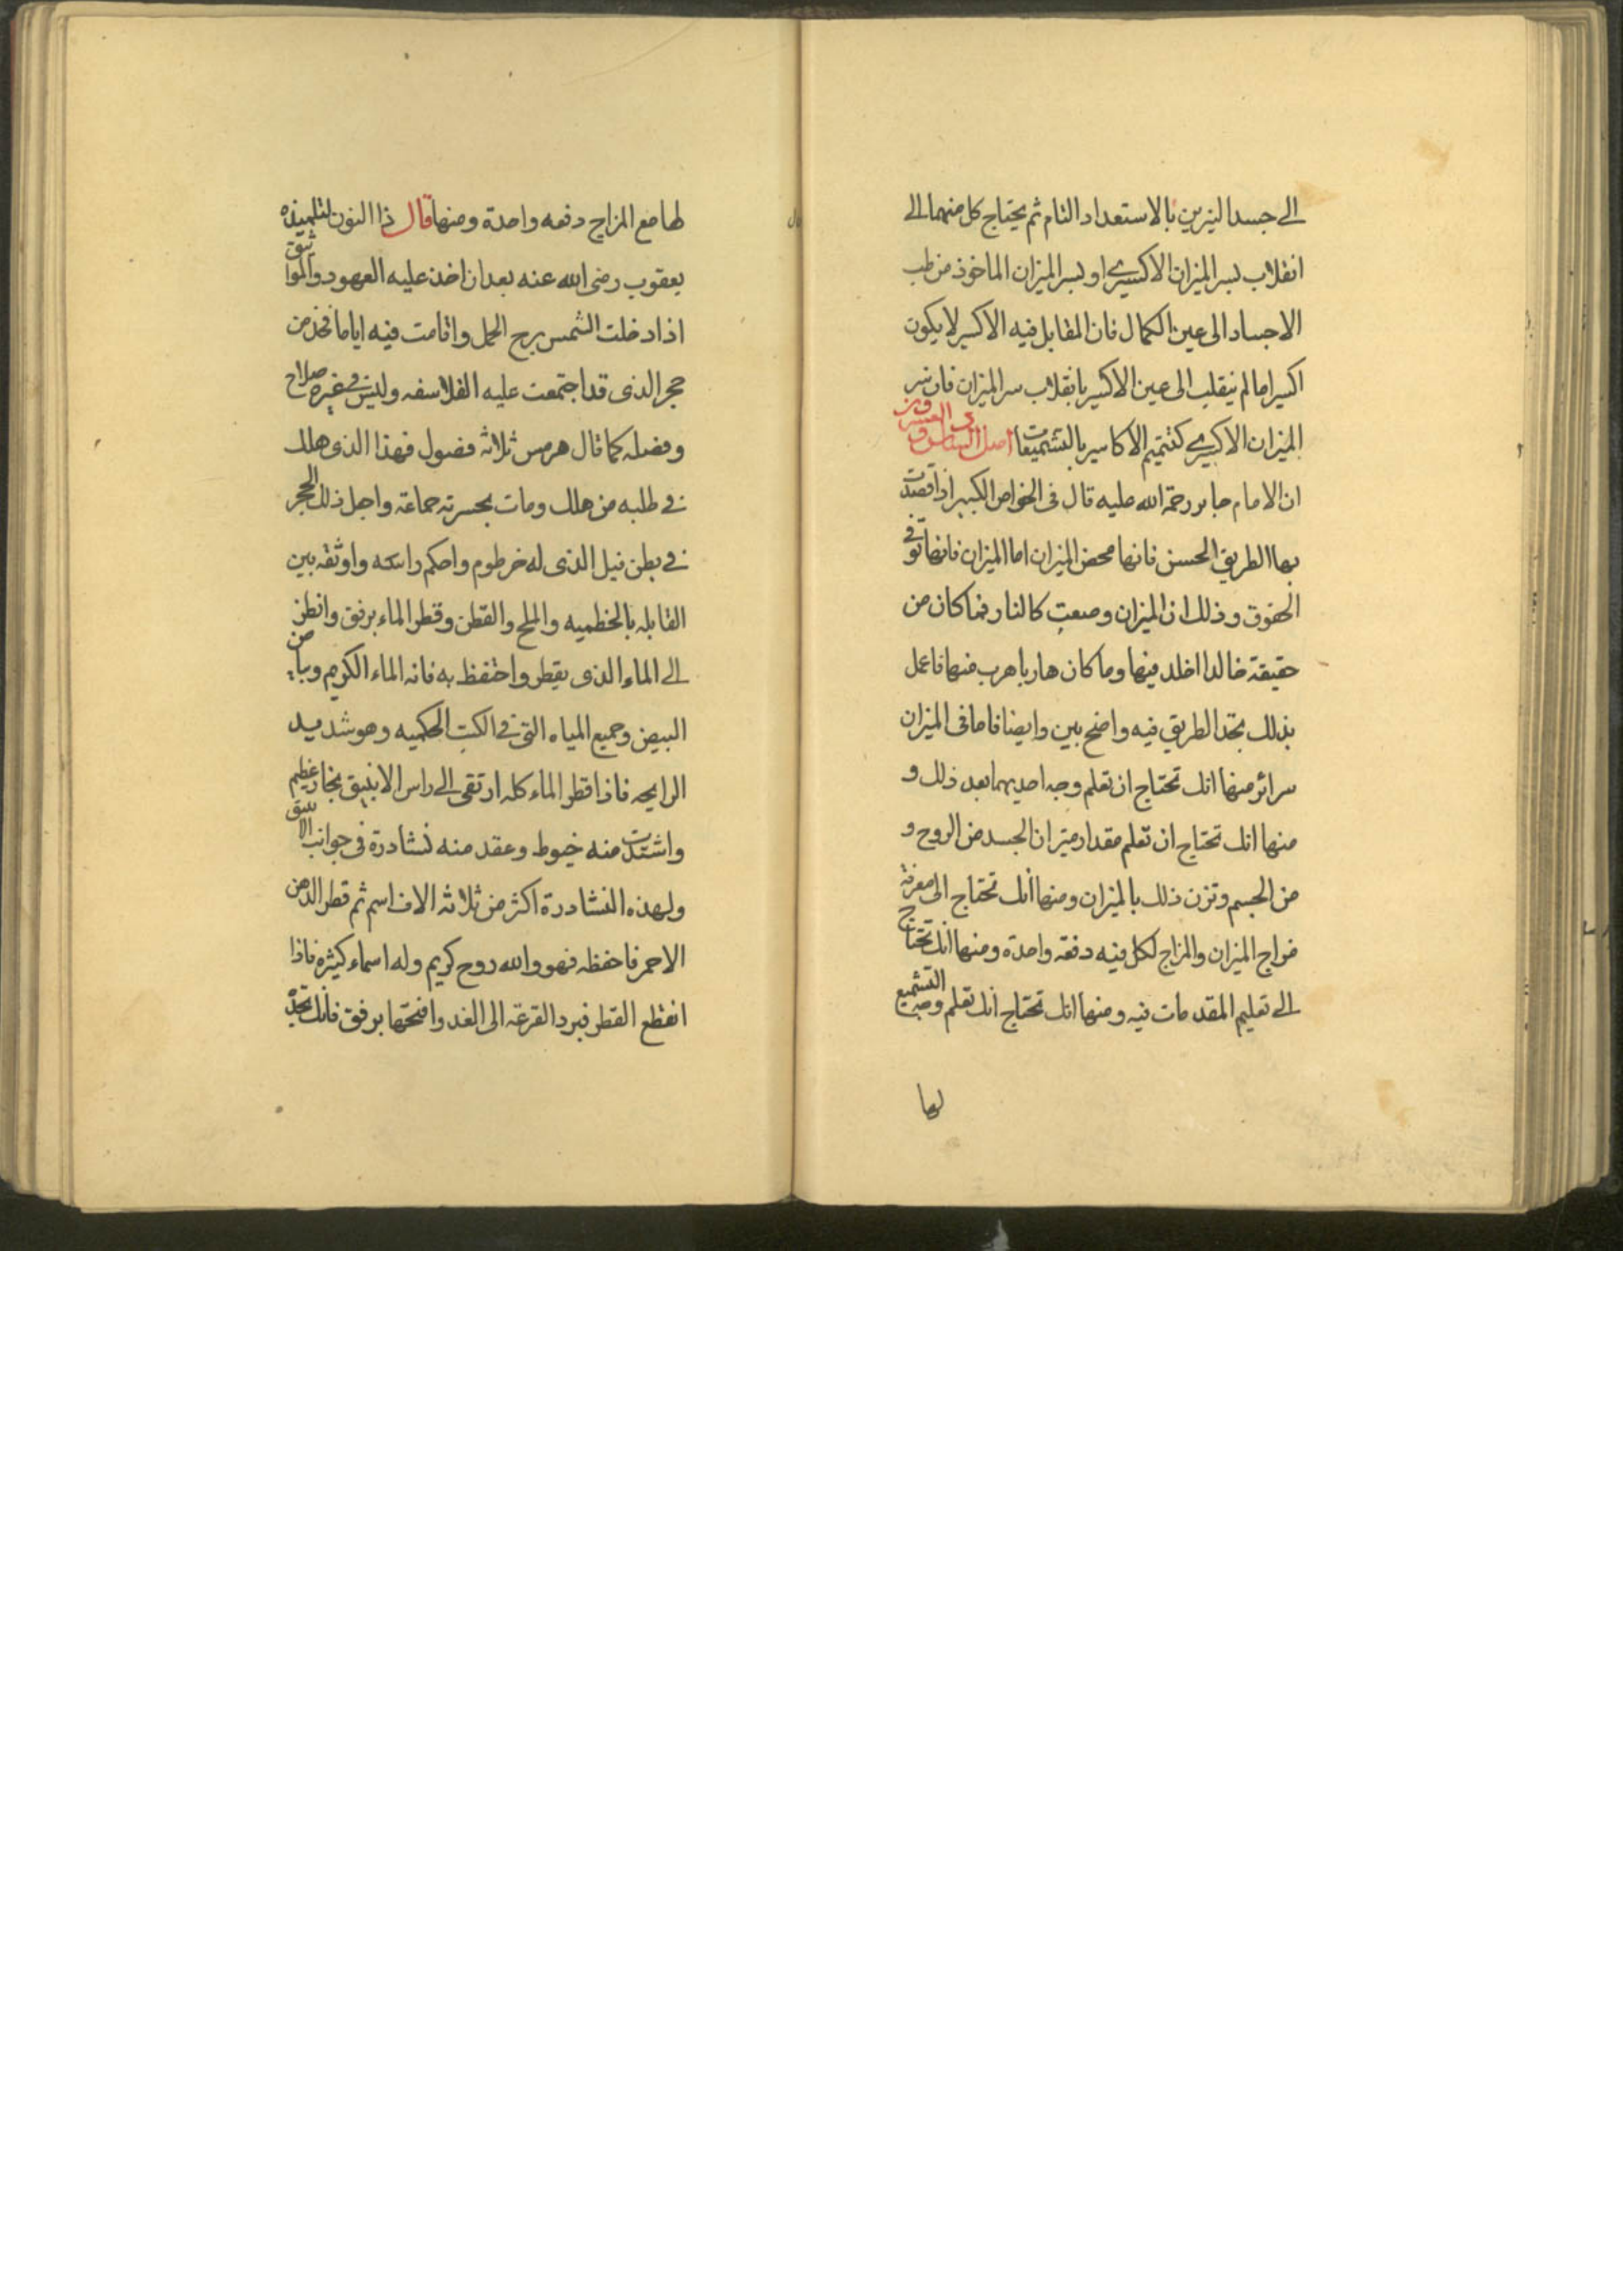 الى جسد النيرين بالاستعداد التام ثم يحتاج كل منهما الى
انقلاب بسر الميزان الاكسيرى او بسر الميزان الماخوذ من طب
الاجساد الى عين الكمال فان المقابل فيه الاكسير لا يكون
اكسيرا ما لم ينقلب الى عين الاكسير بانقلاب سر الميزان فان سر
الميزان الاكسيرى كتتميم الاكاسير بالتشميعات اصل السادس و العشرون
ان الامام جابر رحمة الله عليه قال فى الخواص الكبير اذا قصدت
بها الطريق الحسن فانها محض الميزان اما الميزان فانها توفى
الحقوق و ذلك ان الميزان وضعت كالنار فما كان من
حقيقة خالدا اخلد فيها وما كان هاربا هرب منها فاعمل
بذلك تجد الطريق فيه واضح بين وايضا فاما فى الميزان
سرائر منها انك تحتاج ان تعلم وجه احديهما بعد ذلك و
منها انك تحتاج ان تعلم مقدار ميزان الجسد من الروح و
من الجسم وتزن ذلك بالميزان ومنها انك تحتاج الى معرفة
مزاج الميزان والمزاج لكل فيه دفعة واحدة ومنها انك تحتاج
الى تعليم المقدمات فيه ومنها انك تحتاج انك تعلم وجه التشميع
لها
لها مع المزاج دفعه واحدة ومنها قال ذا النون لتلميذه
يعقوب رضى الله عنه بعد ان اخذ عليه العهود والمواثيق
اذا دخلت الشمس برج الحمل واقامت فيه اياما فخذ من
حجر الذى قد اجتمعت عليه الفلاسفه وليس فى غيره صلاح
وفضله كما قال هرمس ثلاثة فصول فهذا الذى هلك
فى طلبه من هلك ومات بحسرته جماعة واجل ذلك الحجر
فى بطن فيل الذى له خرطوم واحكم راسه واوثقه بين
القابله بالخطميه والملح والقطن وقطر الماء برفق وانظر
الى الماء الذى يقطر واحتفظ به فانه الماء الكريم وبياض
البيض وجميع المياه التى فى الكتب الحكميه وهو شديد
الرايحه فاذا قطر الماء كله ارتقى الى راس الانبيق بخار عظيم
واشتدت منه خيوط وعقد منه نشادرة فى جوانب الانبيق
ولهذه النشادرة اكثر من ثلاثه الاف اسم ثم قطر الدهن
الاحمر فاحفظه فهو والله روح كريم وله اسماء كثيره فاذا
انقطع القطر فبرد القرعة الى الغد وافتحها برفق فانك تجد